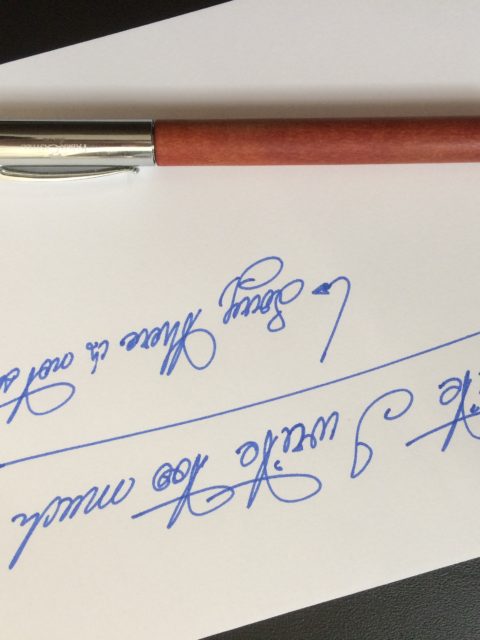 ite I write too much
↳ Sorry there is not s